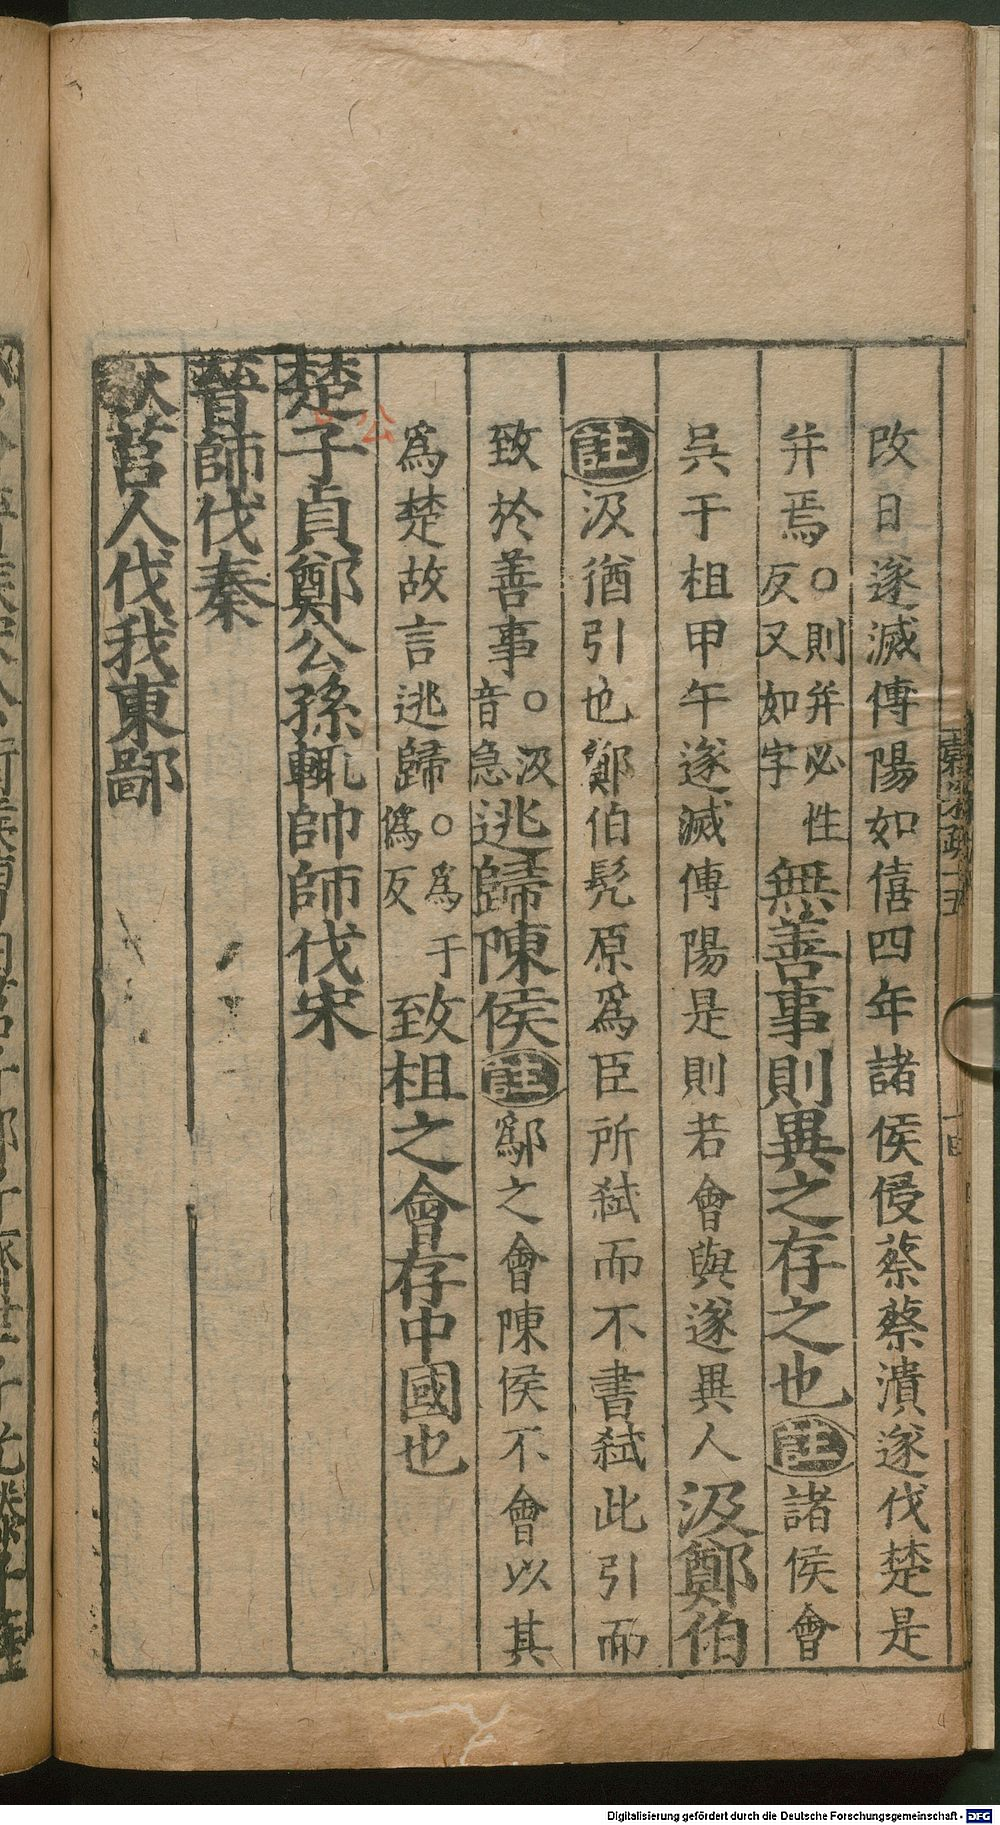 改日遂滅傅陽如僖四年諸侯侵蔡蔡潰遂伐楚是
并焉○則并必性反又如字無善事則異之存之也註諸侯會
吳于柤甲午遂滅傅陽是則若會與遂異人汲鄭伯
註汲猶引也鄭伯髡原爲臣所弑而不書弑此引而
致於善事○汲音急逃歸陳侯註鄬之會陳侯不會以其
爲楚故言逃歸○爲于僞反致柤之會存中國也
楚子貞鄭公孫輒帥師伐宋
公
晉師伐秦
秋莒人伐我東鄙
Digitalisierung gefördert durch die Deutsche Forschungsgemeinschaft - DFG